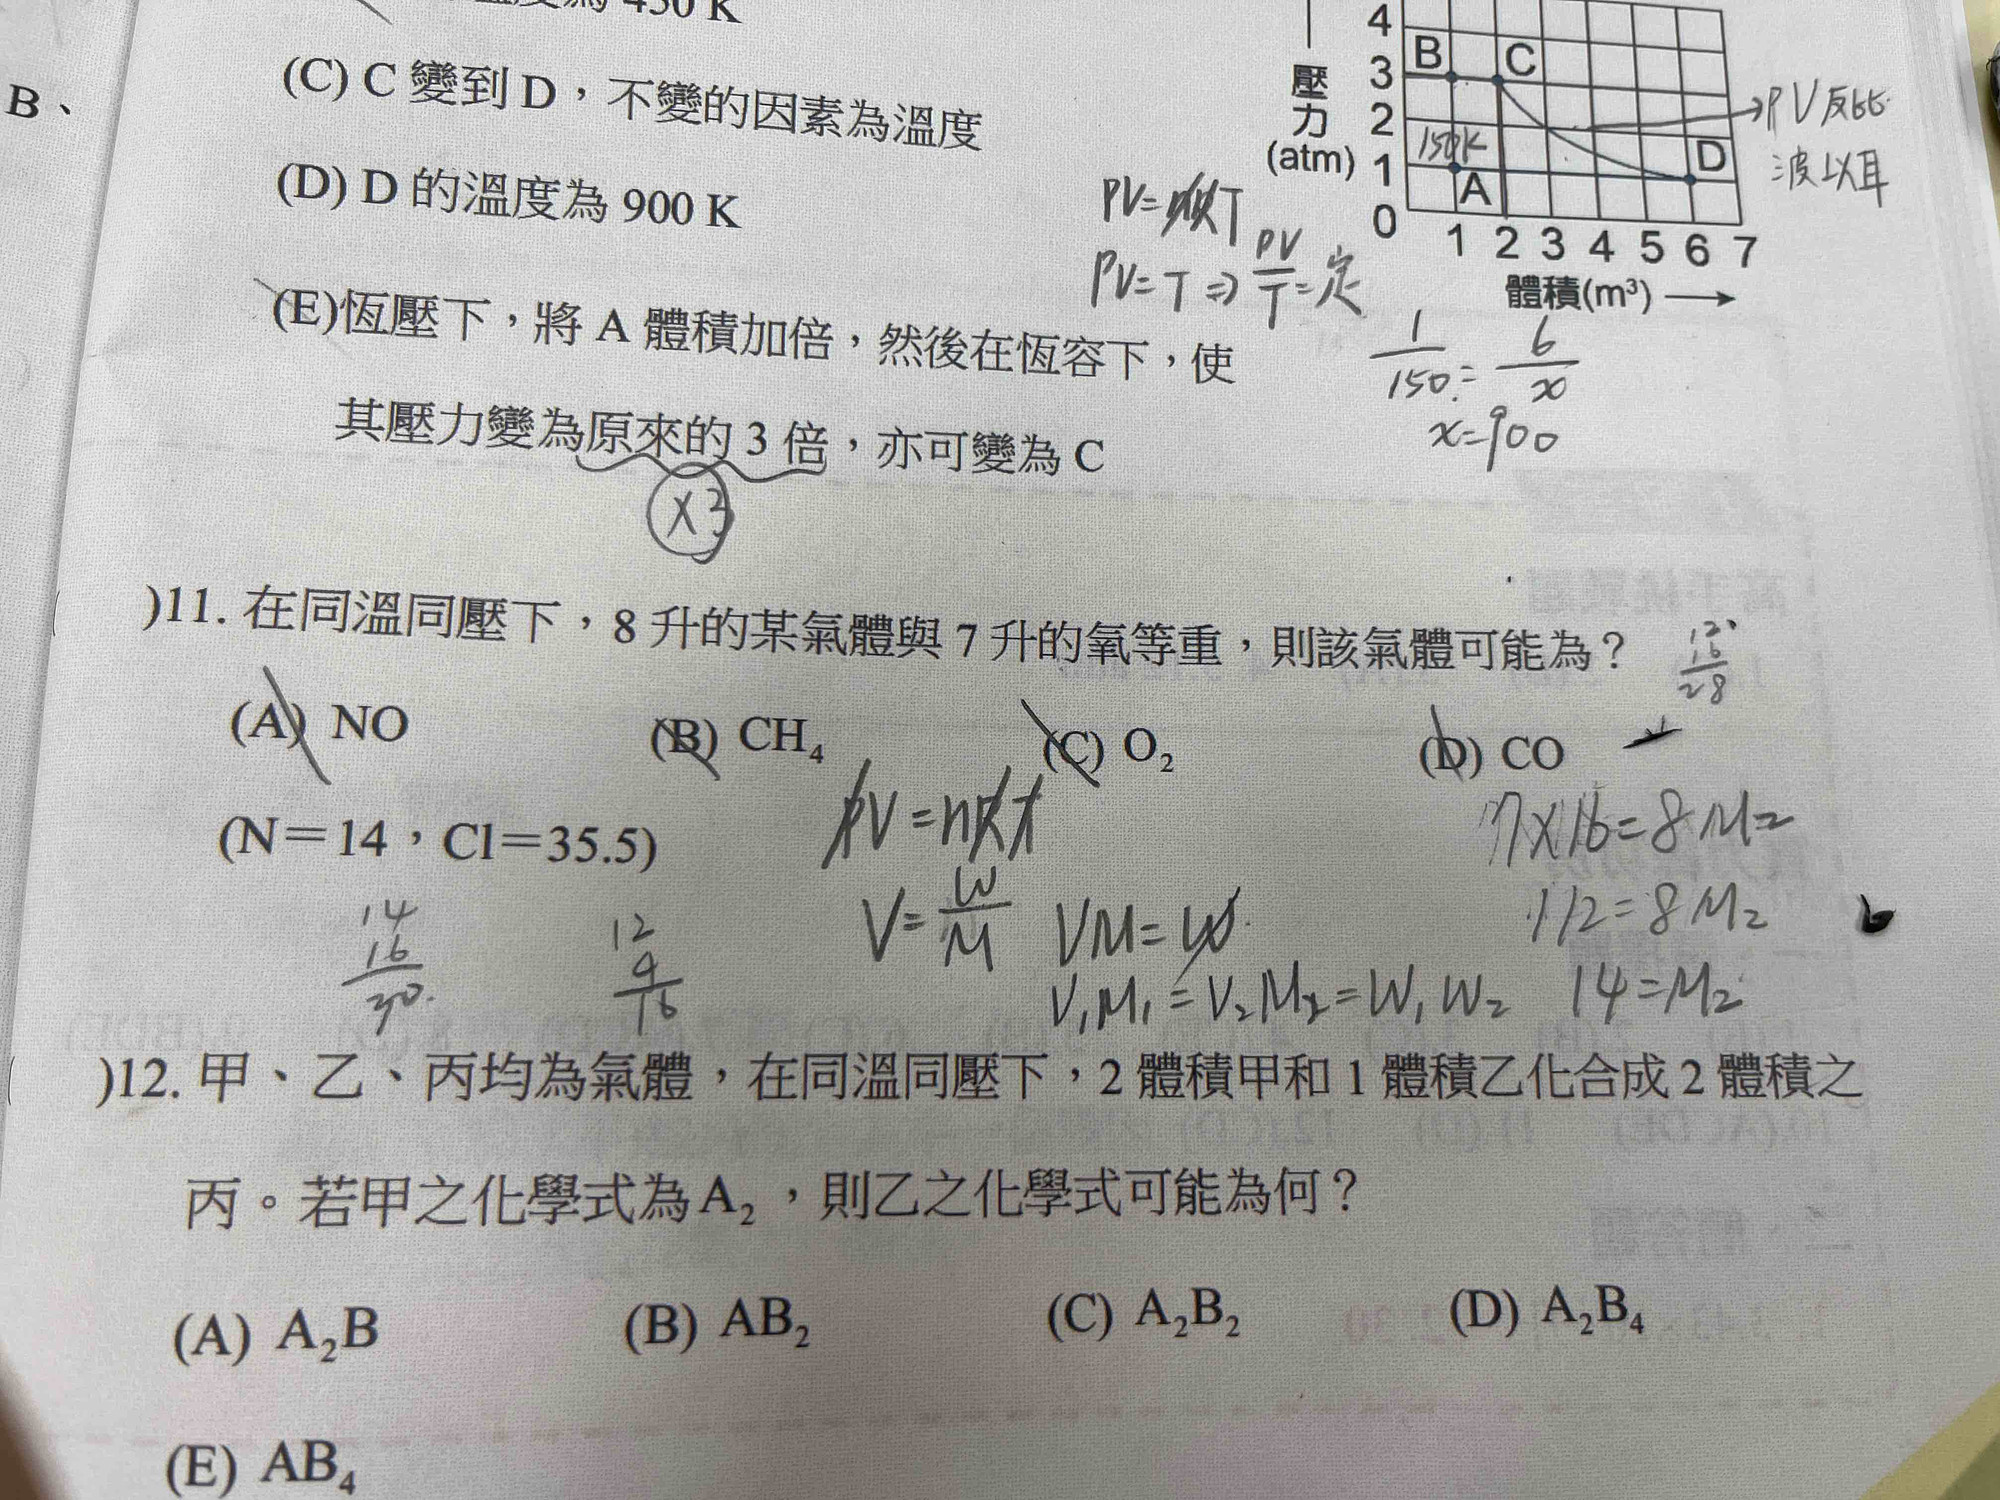 450 K
(C) C 變到 D,不變的因素為溫度
B、
(D) D 的溫度為 900 K
(E)恆壓下,將 A 體積加倍,然後在恆容下,使
其壓力變為原來的 3 倍,亦可變為 C
×3
壓力
(atm)
4
3
2
1
0
B
C
150K
A
D
1 2 3 4 5 6 7
體積(m³)
PV反比
波以耳
PV=nRT
PV=T⇒PV/T=定
1/150=6/x
x=900
)11. 在同溫同壓下,8 升的某氣體與 7 升的氧等重,則該氣體可能為?
12
16
28
(A) NO
(B) CH₄
(C) O₂
(D) CO
(N=14,Cl=35.5)
PV=nRT
7×16=8M2
14
16
30.
12
4
16
V=W/M
VM=W
112=8M2
V1M1=V2M2=W1W2
14=M2
)12. 甲、乙、丙均為氣體,在同溫同壓下,2 體積甲和 1 體積乙化合成 2 體積之
丙。若甲之化學式為 A₂,則乙之化學式可能為何?
(A) A₂B
(B) AB₂
(C) A₂B₂
(D) A₂B₄
(E) AB₄